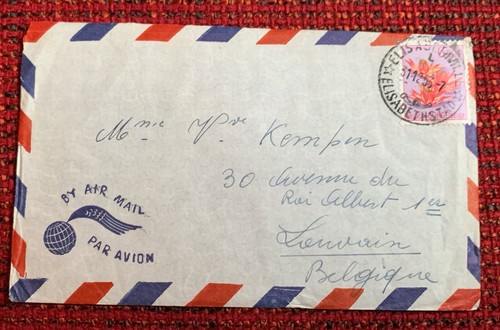 ELISABETHVILLE
L
ELISABETHSTAD
Mme Vve Kempen
30 Avenue du
Roi Albert 1er
Louvain
Belgique
BY AIR MAIL
PAR AVION